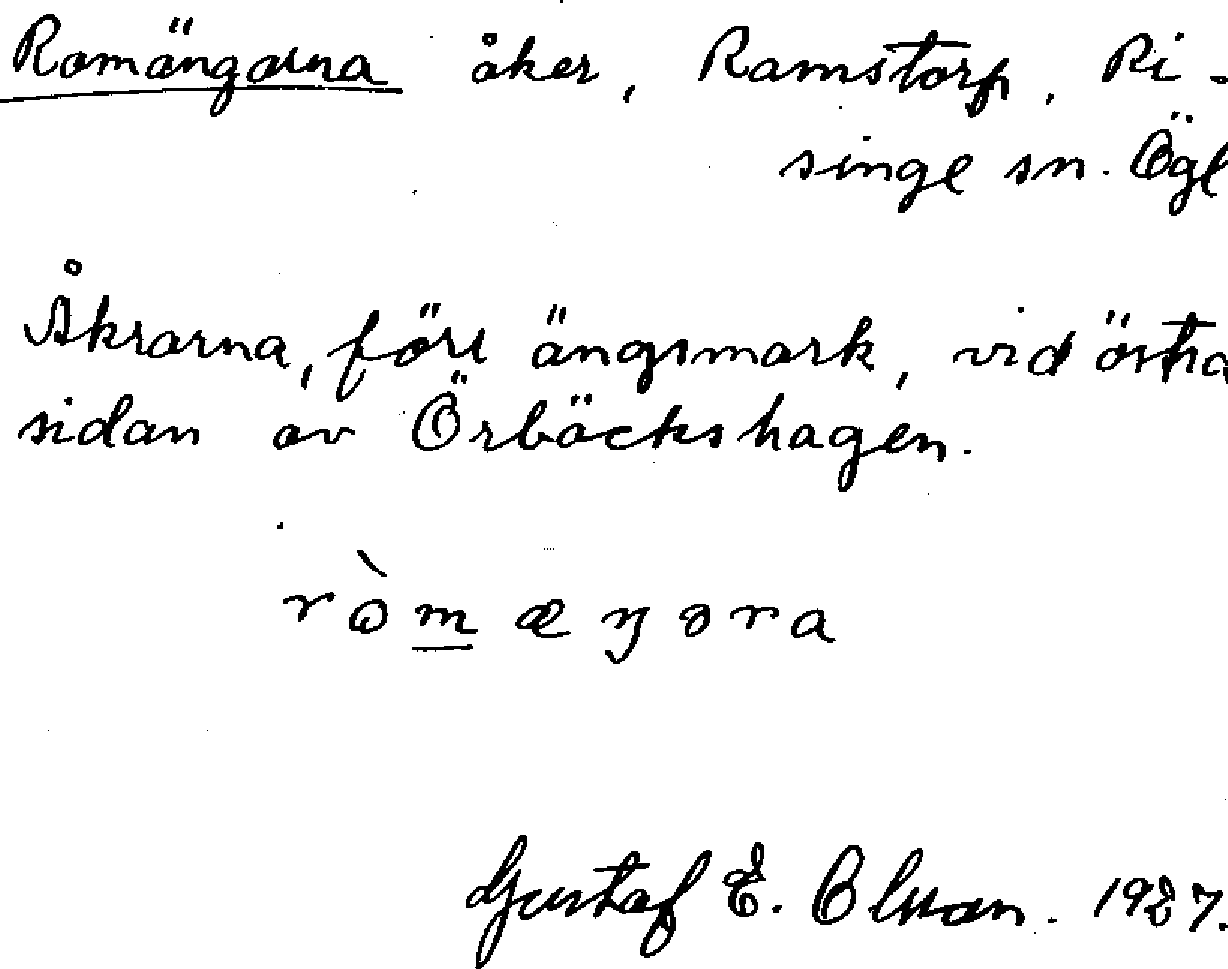 Romängarna åker, Ramstorp, Ri-
singe sn. Ögl
Åkrarna, förr ängsmark, vid östra
sidan av Örbäckshagen.
ròm̲æŋəra
Gustaf E. Olsson. 1927.